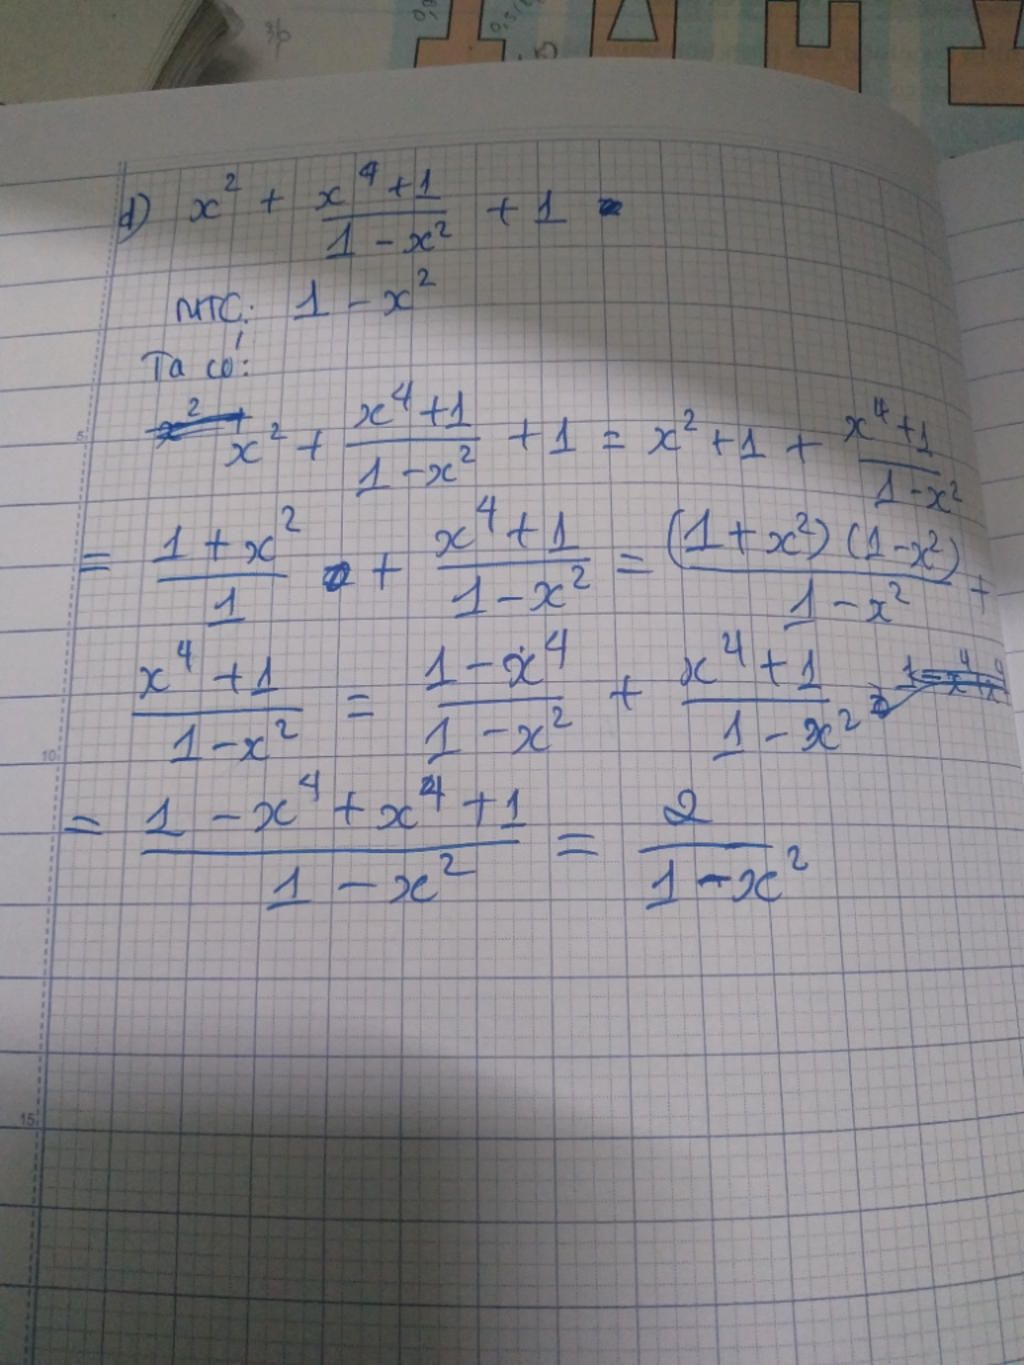 d) x² + (x⁴ + 1)/(1 - x²) + 1
MTC: 1 - x²
Ta có:
x² + (x⁴ + 1)/(1 - x²) + 1 = x² + 1 + (x⁴ + 1)/(1 - x²)
= (1 + x²)/1 + (x⁴ + 1)/(1 - x²) = (1 + x²)(1 - x²)/(1 - x²) +
(x⁴ + 1)/(1 - x²) = (1 - x⁴)/(1 - x²) + (x⁴ + 1)/(1 - x²)
= (1 - x⁴ + x⁴ + 1)/(1 - x²) = 2/(1 - x²)
5
10
15